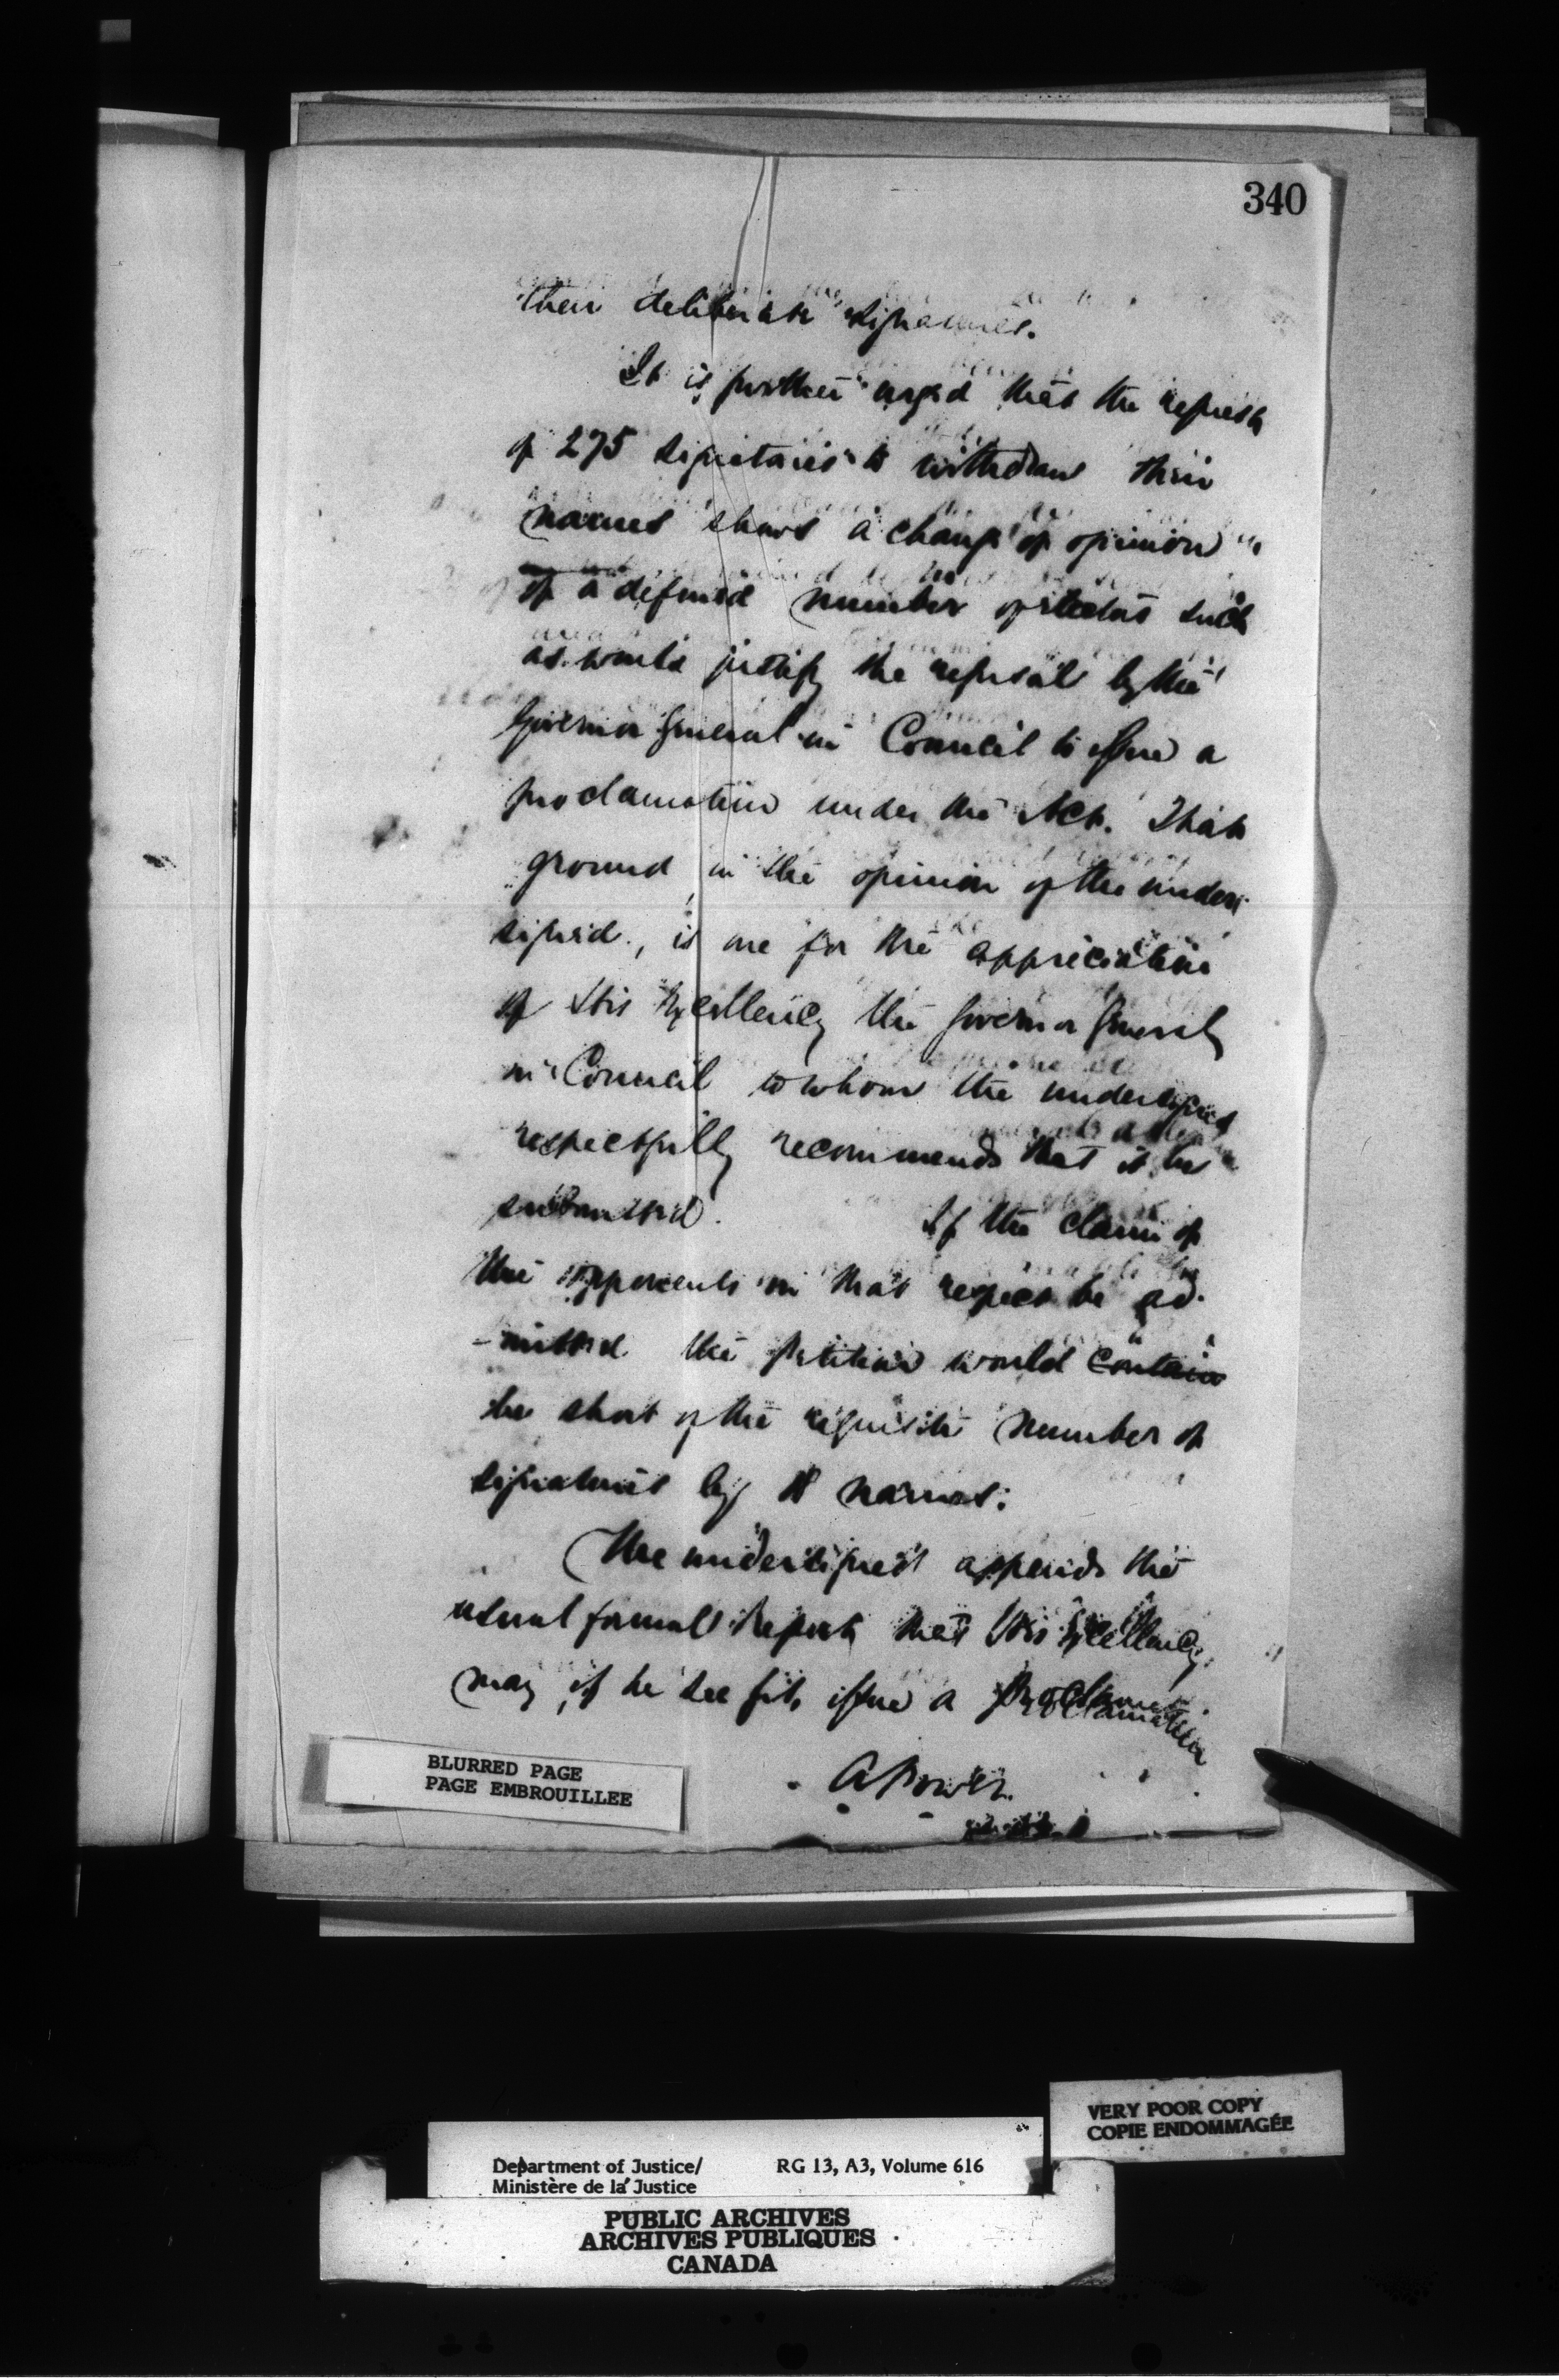 340
their deliberate signatures.
It is further urged that the request
of 275 signatories to withdraw their
names shows a change of opinion
of a defined number of electors such
as would justify the refusal by the
Governor General in Council to issue a
proclamation under the Act. That
ground in the opinion of the under-
signed, is one for the appreciation
of His Excellency the Governor General
in Council to whom the undersigned
respectfully recommends that it be
submitted. If the claim of
the opponents in that respect be ad-
-mitted the petition would contain
be short of the requisite number of
signatures by names.
The undersigned appends the
usual formal Report that His Excellency
may, if he see fit, issue a Proclamation
A Power
BLURRED PAGE
PAGE EMBROUILLEE
VERY POOR COPY
COPIE ENDOMMAGÉE
Department of Justice/ RG 13, A3, Volume 616
Ministère de la Justice
PUBLIC ARCHIVES
ARCHIVES PUBLIQUES
CANADA